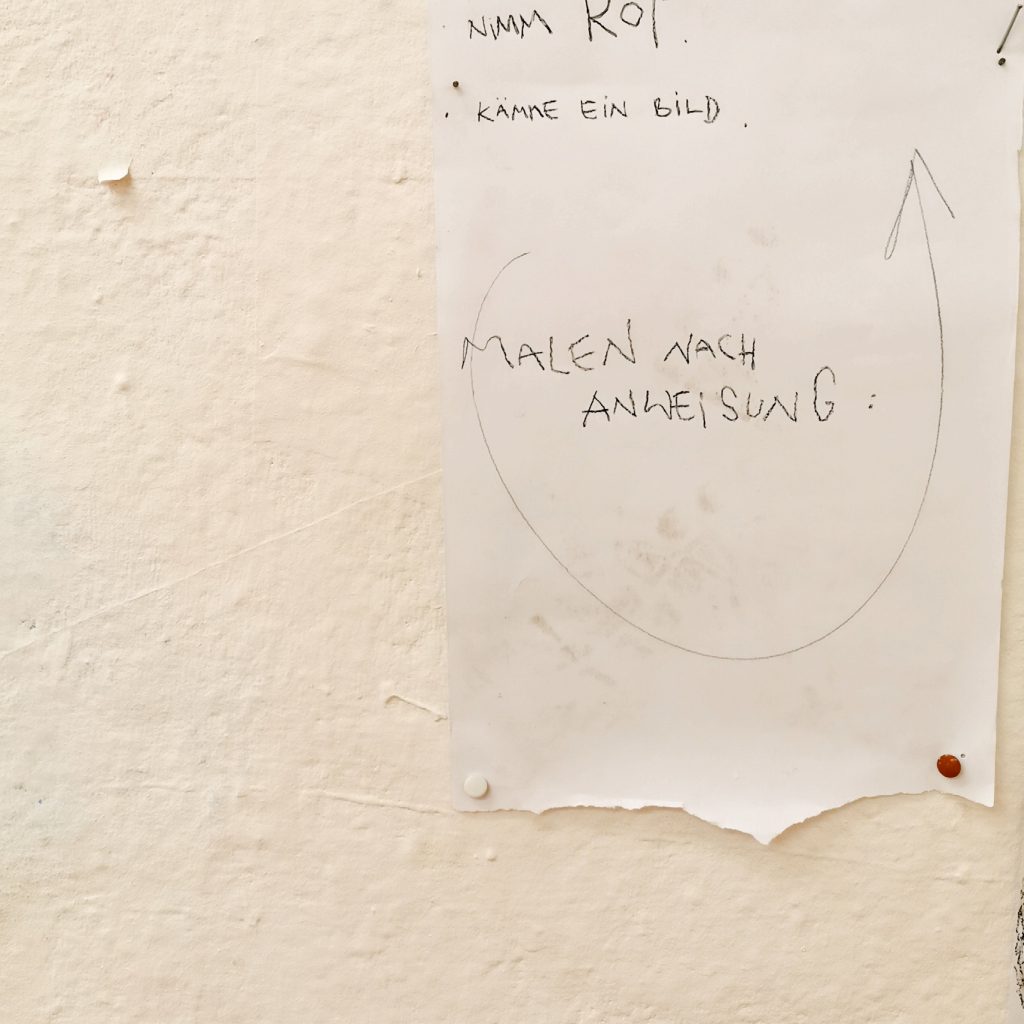 NIMM ROT.
KÄMME EIN BILD.
MALEN NACH
ANWEISUNG: